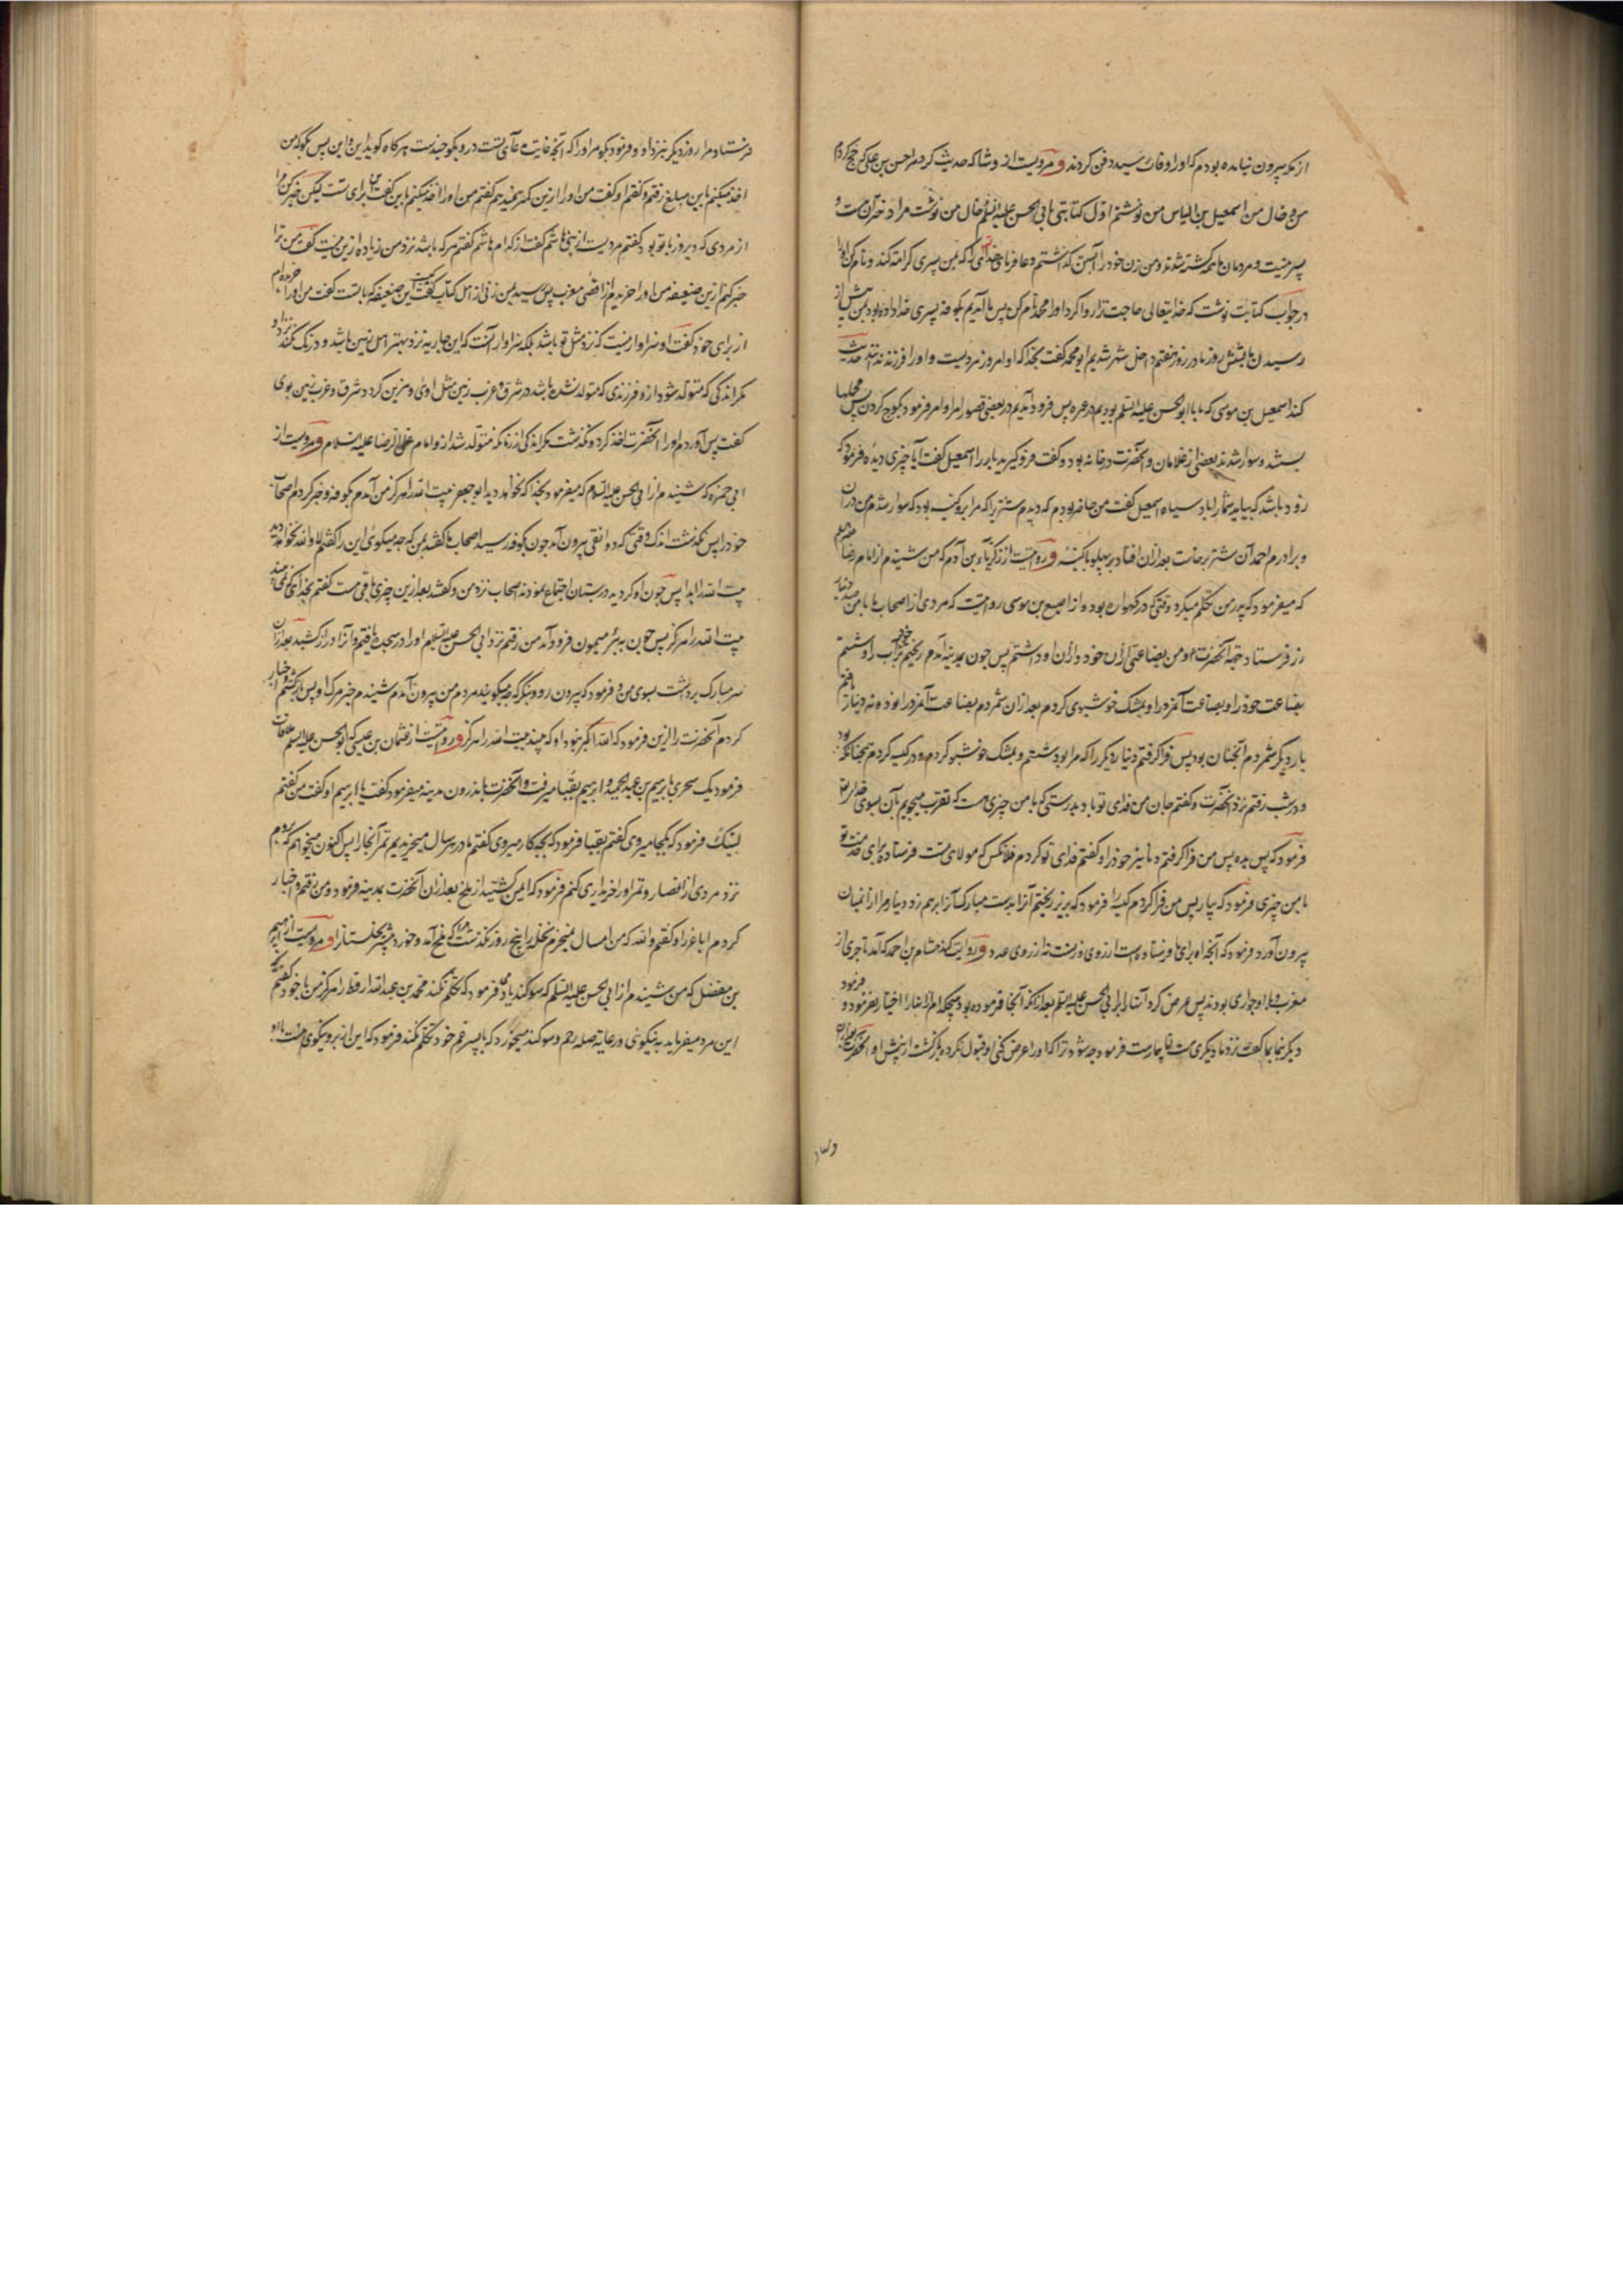 از مکه بیرون نیامده بودم که او را وفات رسید و دفن کردند و مرویست از وشا که حدیث کرد مرا حسن بن علی که حج کردم
من و خال من اسمعیل بن الیاس من نوشتم اول کتابتی بابی الحسن علیه السلم خال من نوشت مرا دختران هست و
پسر نیست و مردمان ما همه کشته شدند و من زن خود را آبستن گذاشتم دعا فرمای خدایرا که بمن پسری کرامت کند و نام کن او را
در جواب کتابت نوشت که خدایتعالی حاجت ترا روا کرد او را محمد نام کن پس ما آمدیم بکوفه پسری خدا داده بود بمن پیش از
رسیدن ما بشش روز ما در روز هفتم داخل شهر شدیم ابو محمد گفت بخدا که او امروز مردیست و او را فرزندانند حدیث
کند اسمعیل بن موسی که ما با ابو الحسن علیه السلم بودیم در عمره پس فرود آمدیم در بعضی قصور امرا و امر فرمود بکوچ کردن پس محملها
بستند و سوار شدند بعضی از غلامان و آنحضرت در خانه بود و گفت فرو گیرید بار را اسمعیل گفت آیا چیزی دیده فرمود که
زود باشد که بیاید شما را باد سیاه اسمعیل گفت من حاضر بودم که دیدم شتریرا که مرا بر و کنیسه بود که سوار شدم من در ان
و برادرم احمد آن شتر برخاست بعد ازان افتاد بر پهلو با کنیسه و روایتست از زکریا بن آدم که من شنیدم از امام رضا علیه السلم
که میفرمود که پدر من تکلم میکرد وقتی که در گهواره بود و از اصبع بن موسی روایتست که مردی از اصحاب ما با من صد دینار
زر فرستاد جهة آنحضرت و من بضاعتی ازان خود و ازان او داشتم پس چون بمدینه آمدم ریختم بر خود آب و شستم
بضاعت خود را و بضاعت آنمرد را و بمشک خوشبوی کردم بعد ازان شمردم بضاعت آنمرد را نود و نه دینار یافتم
بار دیگر شمردم آنچنان بود پس فرا گرفتم دینار دیگر را که مرا بود و شستم و بمشک خوشبو کردم و در کیسه کردم همچنانکه بود
و در شب رفتم نزد آنحضرت و گفتم جان من فدای تو باد بدرستی که با من چیزی هست که تقرب میجویم بآن بسوی خدایتع
فرمود که پس بده پس من فرا گرفتم دنانیر خود را و گفتم فدای تو گردم فلانکس که مولای تست فرستاده برای خدمت تو
با من چیزی فرمود که بیار پس من فرا کردم کیسه را فرمود که بریز ریختم آنرا بدست مبارک آنرا برهم زد دینار مرا از انمیان
بیرون آورد و فرمود که آنچه او برای ما فرستاده است از روی وزنست نه از روی عدد و روایت کند هشام بن احمد که آمد تاجری از
مغرب و با او جواری بودند پس عرض کرد آنانرا بر ابی الحسن علیه السلم بعد ازانکه آنجا فرموده بود هیچکدام از انها را اختیار نفرمود و فرمود
دیگر بنما بما گفت نزد ما دیگری هست اما بیمارست فرمود چه شود ترا که او را عرض کنی او قبول نکرد و برگشت از پیش او آنحضرت
فرستاد مرا روز دیگر نزد او و فرمود بگو مر او را که آنچه غایت مدعای تست درو بگو چندست هرگاه گوید این و این پس بگو که من
اخذ میکنم باین مبلغ رفتم و گفتم او گفت من او را ازین کمتر نمیدهم گفتم من او را اخذ میکنم باین گفت برای تست لیکن خبر کن مرا
از مردی که دیروز با تو بود گفتم مردیست از بنی هاشم گفت از کدام هاشم گفتم هر که باشد نزد من زیاده ازین نیست گفت من ترا
خبر کنم ازین ضعیفه من او را خریدم از اقصی مغرب پس رسید بمن زنی از اهل کتاب گفت این ضعیفه که با تست گفت من او را خریده ام
از برای خود گفت او سزاوار نیست که نزد مثل تو باشد بلکه سزاوار آنست که این جاریه نزد بهتر اهل زمین باشد و درنگ نکند نزد او
مگر اندکی که متولد شود ازو فرزندی که متولد نشده باشد در شرق و غرب زمین مثل اوی و مزین گردد شرق و غرب زمین بوی
گفت پس آوردم او را آنحضرت اخذ کرد و نگذشت مگر اندکی از زمانکه متولد شد ازو امام علی الرضا علیه السلام و مرویست از
ابی حمزه که شنیدم از ابی الحسن علیه السلم که میفرمود بخدا که نخواهد دید ابو جعفر بیت الله را هرگز من آمدم بکوفه و خبر کردم اصحاب
خود را پس نگذشت اندک وقتی که دوانقی بیرون آمد چون بکوفه رسید اصحاب ما گفتند بمن که چه میگوئی این را گفتم لا والله نخواهد دید
بیت الله را ابدا پس چون او گردید در بستان اجتماع نمودند اصحاب نزد من و گفتند بعد ازین چیزی باقی هست گفتم بخدا که نمی بیند
بیت الله را هرگز پس چون به بئر میمون فرود آمد من رفتم نزد ابی الحسن علیه السلم او را در سجده یافتم و آنرا دراز کشید بعد ازان
سر مبارک برداشت بسوی من و فرمود که بیرون رو و بنگر که چه میگویند مردم من بیرون آمدم شنیدم خبر مرگ او پس بازگشتم اخبار
کردم آنحضرت را ازین فرمود که الله اکبر نبود او که ببیند بیت الله را هرگز و روایتست از عثمان بن عیسی که ابو الحسن علیه السلم ملاقات
فرمود یک سحری بابرهیم بن عبد الحمید و ابرهیم بقبا میرفت و آنحضرت باندرون مدینه میفرمود گفت یا ابرهیم او گفت من گفتم
لبیک فرمود که بکجا میروی گفتم بقبا فرمود که بچه کار میروی گفتم ما در هر سال میخریدیم تمر آنجا را پس اکنون میخواهم که بروم
نزد مردی از انصار و تمر او را خریداری کنم فرمود که ایمن گشتید از ملخ بعد ازان آنحضرت بمدینه فرمود و من رفتم و اخبار
کردم ابا غر را و گفتم والله که من امسال نمیخرم نخله را پنج روز نگذشت که ملخ آمد و خورد بیشتر نخلستانرا و مرویست از ابرهیم
بن مفضل که من شنیدم از ابی الحسن علیه السلم که سوگند یاد می فرمود که تکلم نکند محمد بن عبد الله ارقط را هرگز من با خود گفتم که
این مرد میفرماید به نیکوئی و رعایة صله رحم و سوگند میخورد که با پسر عم خود تکلم نکند فرمود که این از بر و نیکوی منست باو